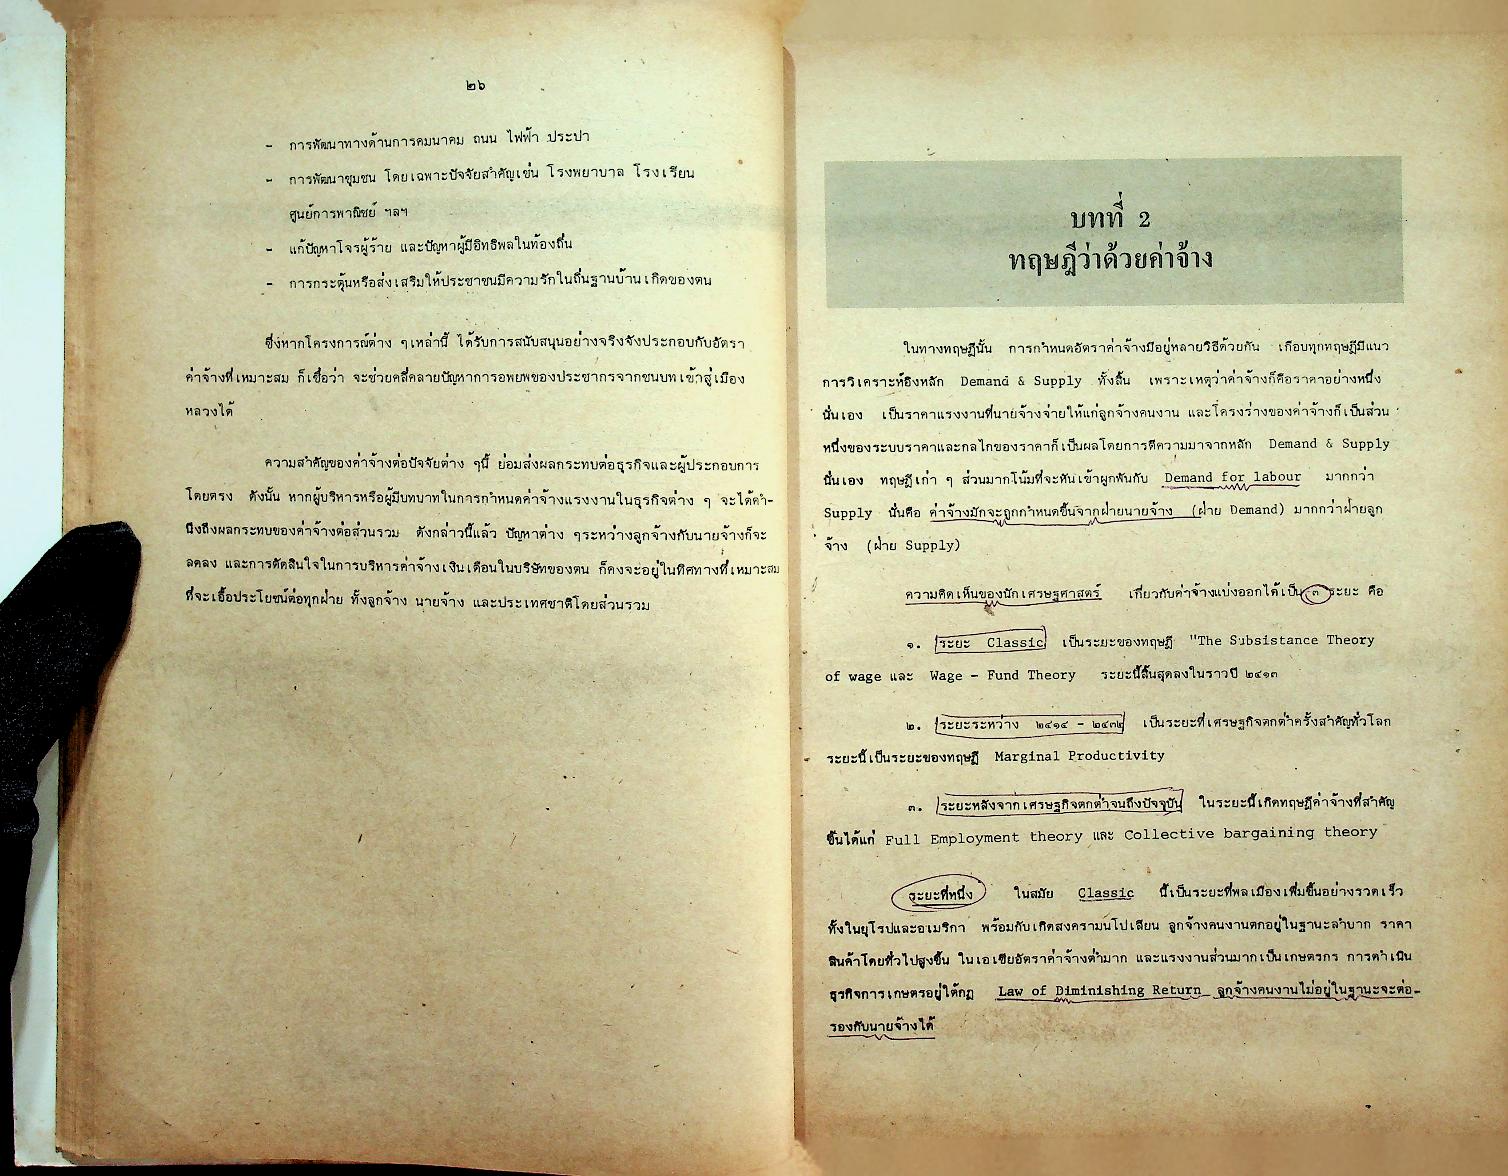 ๒๖
- การพัฒนาทางด้านการคมนาคม ถนน ไฟฟ้า ประปา
- การพัฒนาชุมชน โดยเฉพาะปัจจัยสำคัญเช่น โรงพยาบาล โรงเรียน
ศูนย์การพาณิชย์ ฯลฯ
- แก้ปัญหาโจรผู้ร้าย และปัญหาผู้มีอิทธิพลในท้องถิ่น
- การกระตุ้นหรือส่งเสริมให้ประชาชนมีความรักในถิ่นฐานบ้านเกิดของตน
ซึ่งหากโครงการณ์ต่าง ๆเหล่านี้ ได้รับการสนับสนุนอย่างจริงจังประกอบกับอัตรา
ค่าจ้างที่เหมาะสม ก็เชื่อว่า จะช่วยคลี่คลายปัญหาการอพยพของประชากรจากชนบทเข้าสู่เมือง
หลวงได้
ความสำคัญของค่าจ้างต่อปัจจัยต่าง ๆนี้ ย่อมส่งผลกระทบต่อธุรกิจและผู้ประกอบการ
โดยตรง ดังนั้น หากผู้บริหารหรือผู้มีบทบาทในการกำหนดค่าจ้างแรงงานในธุรกิจต่าง ๆ จะได้คำ-
นึงถึงผลกระทบของค่าจ้างต่อส่วนรวม ดังกล่าวนี้แล้ว ปัญหาต่าง ๆระหว่างลูกจ้างกับนายจ้างก็จะ
ลดลง และการตัดสินใจในการบริหารค่าจ้างเงินเดือนในบริษัทของตน ก็คงจะอยู่ในทิศทางที่เหมาะสม
ที่จะเอื้อประโยชน์ต่อทุกฝ่าย ทั้งลูกจ้าง นายจ้าง และประเทศชาติโดยส่วนรวม
บทที่ 2
ทฤษฎีว่าด้วยค่าจ้าง
ในทางทฤษฎีนั้น การกำหนดอัตราค่าจ้างมีอยู่หลายวิธีด้วยกัน เกือบทุกทฤษฎีมีแนว
การวิเคราะห์อิงหลัก Demand & Supply ทั้งสิ้น เพราะเหตุว่าค่าจ้างก็คือราคาอย่างหนึ่ง
นั่นเอง เป็นราคาแรงงานที่นายจ้างจ่ายให้แก่ลูกจ้างคนงาน และโครงร่างของค่าจ้างก็เป็นส่วน
หนึ่งของระบบราคาและกลไกของราคาก็เป็นผลโดยการตีความมาจากหลัก Demand & Supply
นั่นเอง ทฤษฎีเก่า ๆ ส่วนมากโน้มที่จะหันเข้าผูกพันกับ Demand for labour มากกว่า
Supply นั่นคือ ค่าจ้างมักจะถูกกำหนดขึ้นจากฝ่ายนายจ้าง (ฝ่าย Demand) มากกว่าฝ่ายลูก
จ้าง (ฝ่าย Supply)
ความคิดเห็นของนักเศรษฐศาสตร์ เกี่ยวกับค่าจ้างแบ่งออกได้เป็น ๓ ระยะ คือ
๑. ระยะ Classic เป็นระยะของทฤษฎี "The Subsistance Theory
of wage และ Wage - Fund Theory ระยะนี้สิ้นสุดลงในราวปี ๒๔๑๓
๒. ระยะระหว่าง ๒๔๑๔ - ๒๔๓๒ เป็นระยะที่เศรษฐกิจตกต่ำครั้งสำคัญทั่วโลก
ระยะนี้เป็นระยะของทฤษฎี Marginal Productivity
๓. ระยะหลังจากเศรษฐกิจตกต่ำจนถึงปัจจุบัน ในระยะนี้เกิดทฤษฎีค่าจ้างที่สำคัญ
ขึ้นได้แก่ Full Employment theory และ Collective bargaining theory
ระยะที่หนึ่ง ในสมัย Classic นี้เป็นระยะที่พลเมืองเพิ่มขึ้นอย่างรวดเร็ว
ทั้งในยุโรปและอเมริกา พร้อมกับเกิดสงครามนโปเลียน ลูกจ้างคนงานตกอยู่ในฐานะลำบาก ราคา
สินค้าโดยทั่วไปสูงขึ้น ในเอเซียอัตราค่าจ้างต่ำมาก และแรงงานส่วนมากเป็นเกษตรกร การดำเนิน
ธุรกิจการเกษตรอยู่ใต้กฎ Law of Diminishing Return ลูกจ้างคนงานไม่อยู่ในฐานะจะต่อ-
รองกับนายจ้างได้